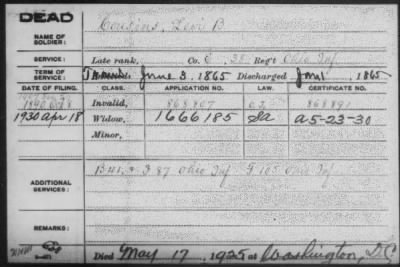 DEAD
NAME OF SOLDIER:
Cousins, Levi B
SERVICE:
Late rank, Co. 38 Reg't Ohio Inf.
TERM OF SERVICE:
June 3, 1865 Discharged 1865
DATE OF FILING. CLASS. APPLICATION NO. LAW. CERTIFICATE NO.
1890 Invalid, 868891
1930 Apr 18 Widow, 1666185 Ga A5-23-30
Minor,
ADDITIONAL SERVICES:
87 Ohio Inf F 105 Ohio Inf
REMARKS:
Died May 17, 1925 at Washington, D.C.